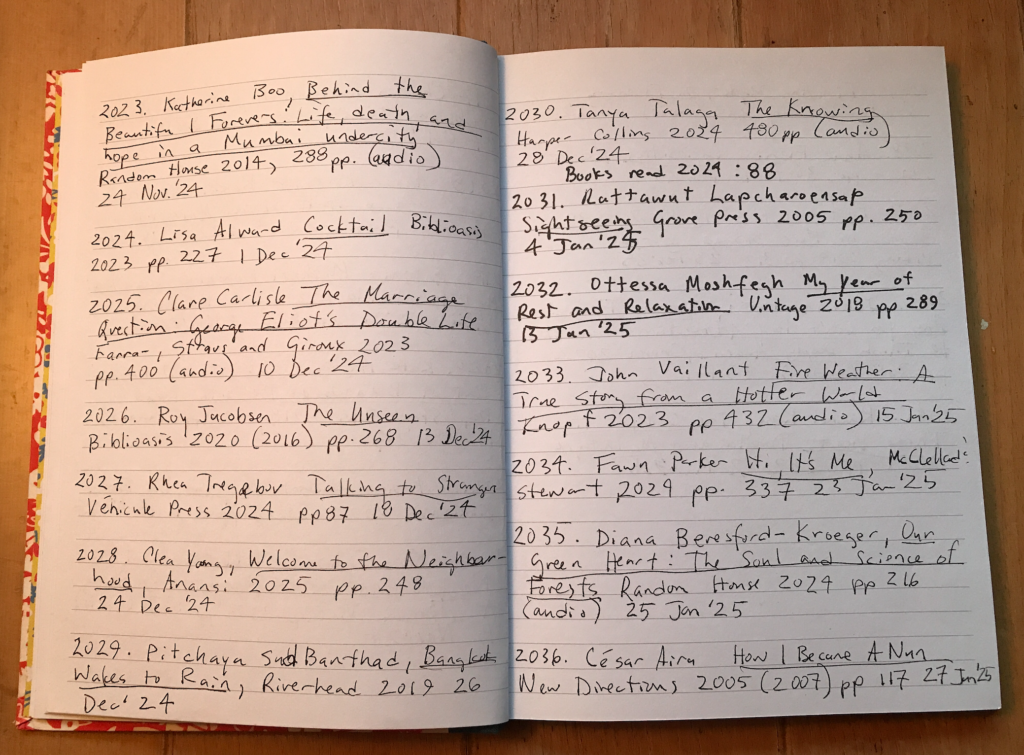 2023. Katherine Boo, Behind the
Beautiful Forevers: Life, death, and
hope in a Mumbai undercity
Random House 2014, 288 pp. (audio)
24 Nov. '24
2024. Lisa Alward Cocktail Biblioasis
2023 pp. 227 1 Dec '24
2025. Clare Carlisle The Marriage
Question: George Eliot's Double Life
Farrar, Straus and Giroux 2023
pp. 400 (audio) 10 Dec '24
2026. Roy Jacobsen The Unseen
Biblioasis 2020 (2016) pp. 268 13 Dec '24
2027. Rhea Tregebov Talking to Strangers
Véhicule Press 2024 pp 87 18 Dec '24
2028. Clea Young, Welcome to the Neighbor-
hood, Anansi 2025 pp. 248
24 Dec '24
2029. Pitchaya Sudbanthad, Bangkok
Wakes to Rain, Riverhead 2019 26
Dec '24
2030. Tanya Talaga The Knowing
Harper Collins 2024 480 pp (audio)
28 Dec '24
Books read 2024 : 88
2031. Rattawut Lapcharoensap
Sightseeing Grove Press 2005 pp. 250
4 Jan '25
2032. Ottessa Moshfegh My Year of
Rest and Relaxation Vintage 2018 pp 289
13 Jan '25
2033. John Vaillant Fire Weather: A
True Story from a Hotter World
Knopf 2023 pp 432 (audio) 15 Jan '25
2034. Fawn Parker Hi, It's Me, McClelland &
Stewart 2024 pp. 337 23 Jan '25
2035. Diana Beresford-Kroeger, Our
Green Heart: The Soul and Science of
Forests Random House 2024 pp 216
(audio) 25 Jan '25
2036. César Aira How I Became A Nun
New Directions 2005 (2007) pp 117 27 Jan '25